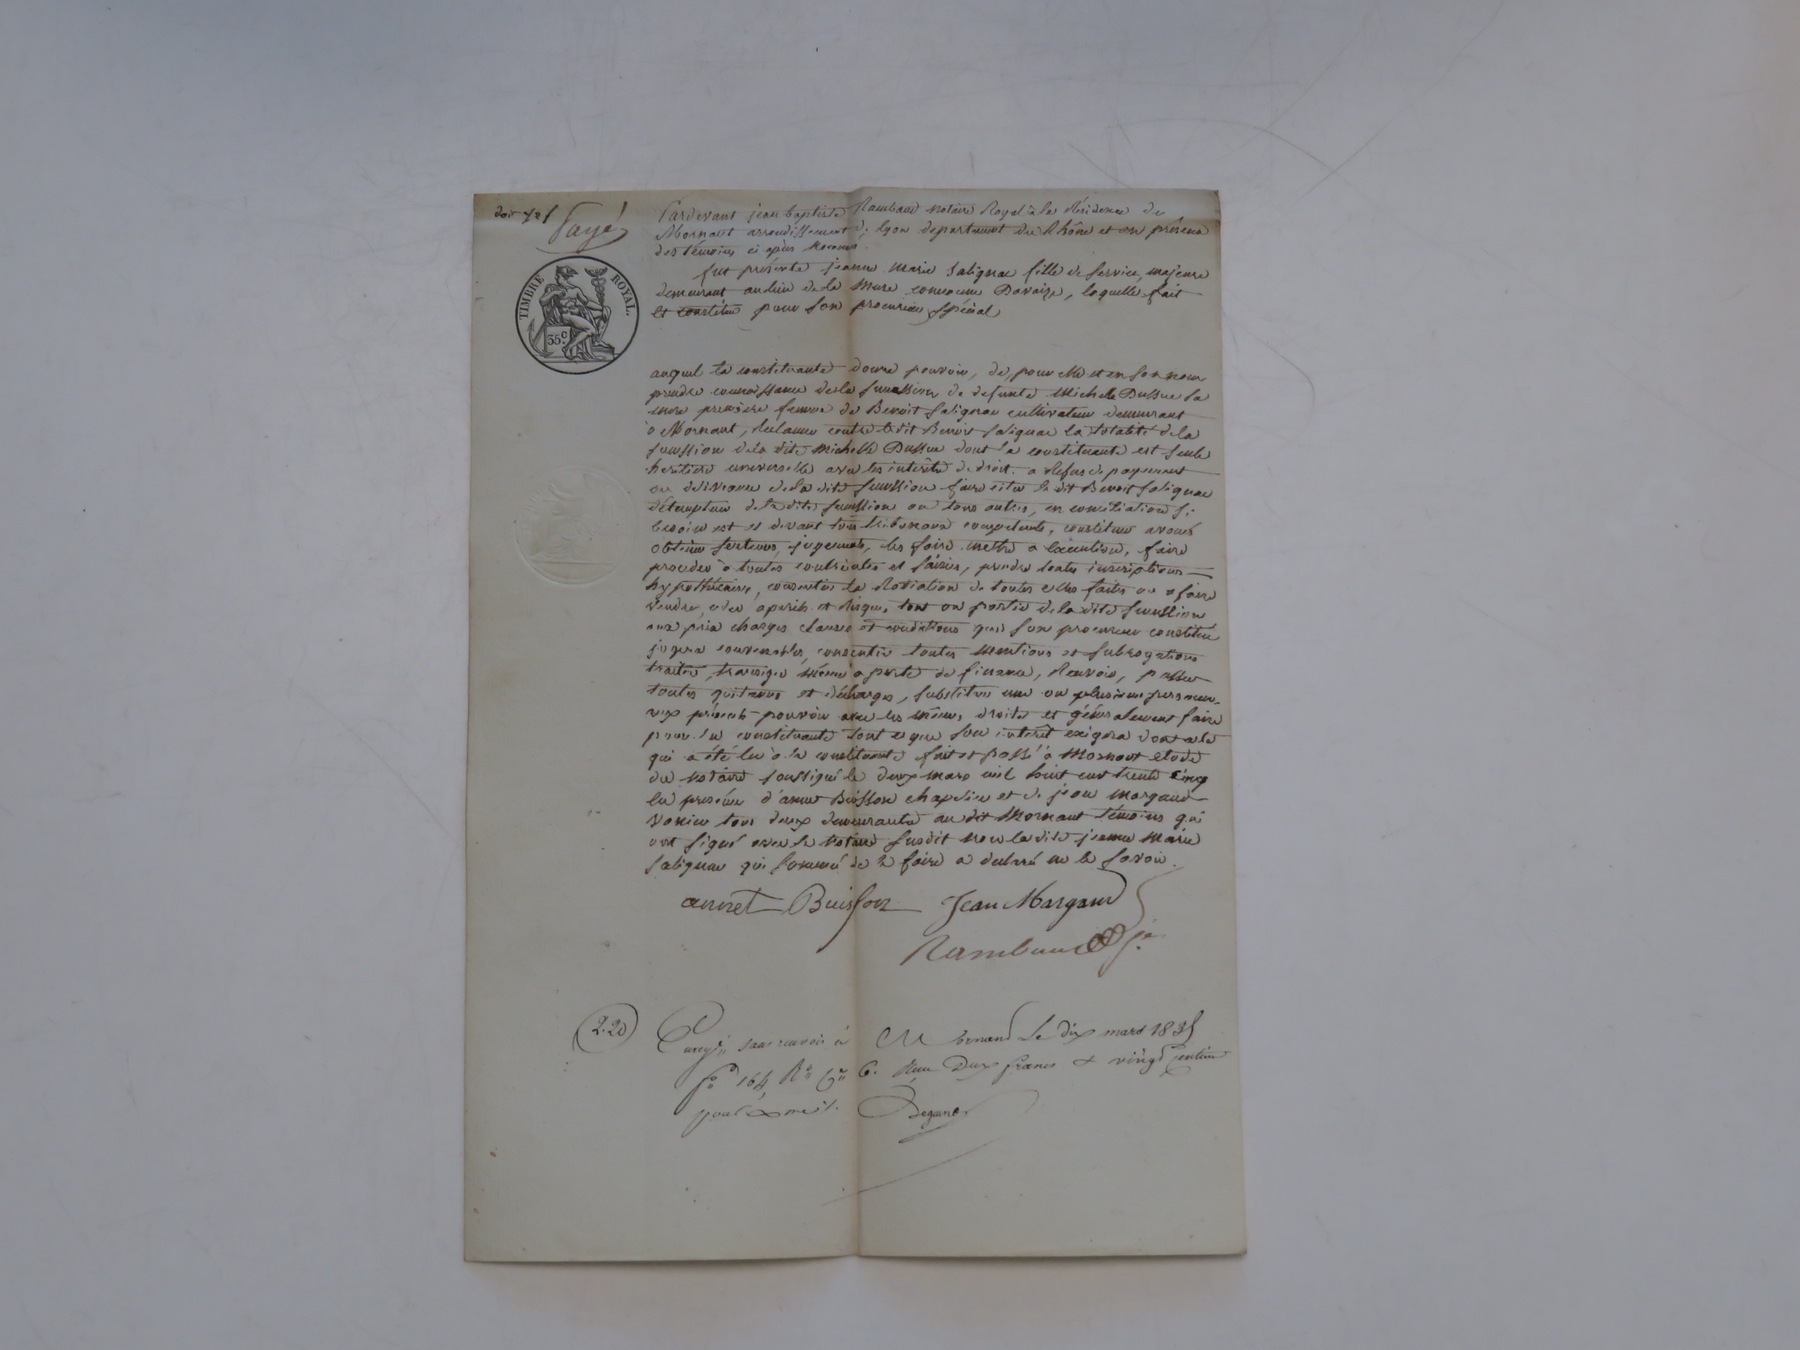 doit 72f
Payé
Pardevant jean baptiste Rambaud notaire Royal à la Résidence de
Mornant arrondissement de lyon departement du Rhône et en présence
des témoins ci après nommés
TIMBRE ROYAL.
35 c.
fut présente jeanne marie Salignac fille de Service, majeure
demeurant au lieu de la Mure commune Davaize, laquelle fait
et constitue pour son procureur spécial
auquel la constituante donne pouvoir, de, pour elle et en son nom
prendre connaissance de la succession de defunte Michelle Dussue sa
mere première femme de Benoit Salignac cultivateur demeurant
a Mornant, reclamer contre le dit Benoit Salignac la totalité de la
succession de la dite Michelle Dussue dont la constituante est seule
heritiere universelle avec les intérêts de droit. a refus de payement
ou delivrance de la dite succession faire citer le dit Benoit Salignac
détempteur de la dite succession ou tous autres, en conciliation si
besoin est et devant tous tribunaux compétents, constituer avoués
obtenir sentences, jugements, les faire mettre a execution, faire
proceder à toutes contraintes et saisies, prendre toutes inscriptions
hypothécaires, consentir la radiation de toutes celles faites ou a faire
vendre, ceder a perils et risques tout ou partie de la dite succession
aux prix charges clauses et conditions que son procureur constitué
jugera convenables, consentir toutes mentions et subrogations
traiter, transiger même a perte de finance, recevoir, passer
toutes quitances et décharges, substituer une ou plusieurs personnes
aux présents pouvoirs avec les mêmes droits et généralement faire
pour la constituante tout ce que son intérêt exigera dont acte
qui a été lu à la constituante fait et passé à Mornant etude
du notaire soussigné le deux mars mil huit cent trente cinq
en présence d'annet Buisson chapelier et de jean Margaud
vanier tous deux demeurants au dit Mornant témoins qui
ont signé avec le notaire susdit non la dite jeanne Marie
Salignac qui sommée de le faire a declaré ne le savoir.
annet Buisson Jean Margaud
Rambaud
2.20
Enregté sans renvois à Mornant le dix mars 1835
fo 164 Ro Cse 6. Reçu Deux francs & vingt centimes
pour dixme